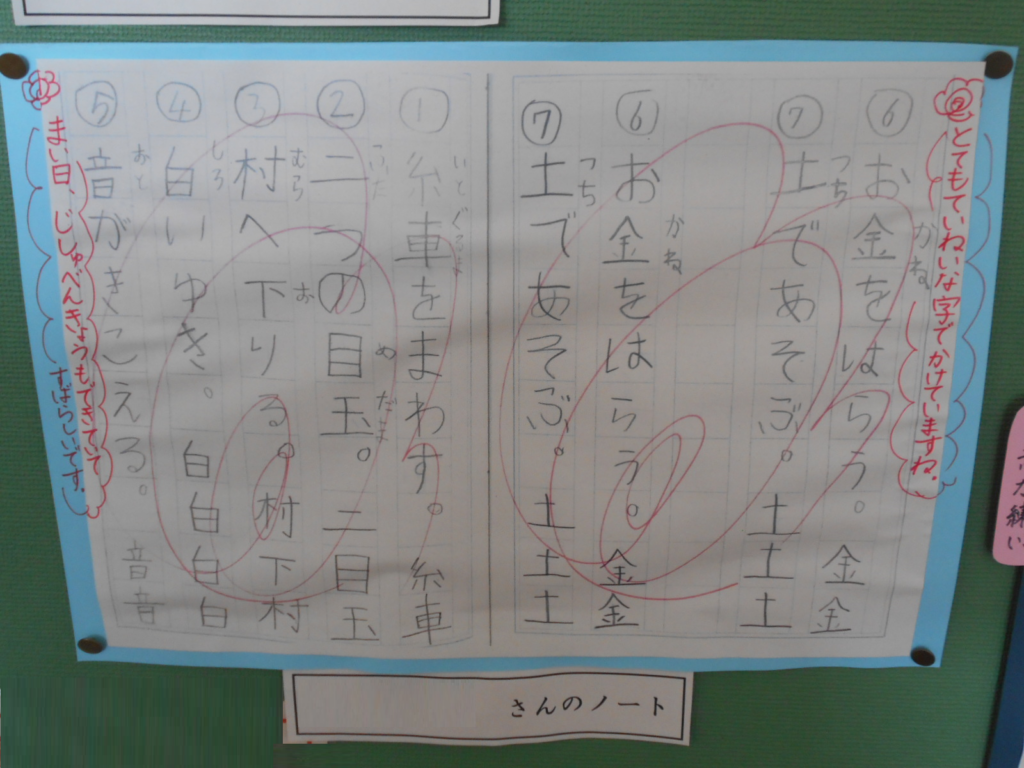 ②とてもていねいな字でかけていますね。
⑥お金をはらう。金金
かね
⑦土であそぶ。土土土
つち
⑥お金をはらう。金金
かね
⑦土であそぶ。土土土
つち
①糸車をまわす。糸車
いとぐるま
②二つの目玉。二目玉
ふた
め だま
③村へ下りる。村下村
むら
お
④白いゆき。白白白白
しろ
⑤音がきこえる。音音
おと
①まい日、じしゅべんきょうもできていて
すばらしいです。
さんのノート